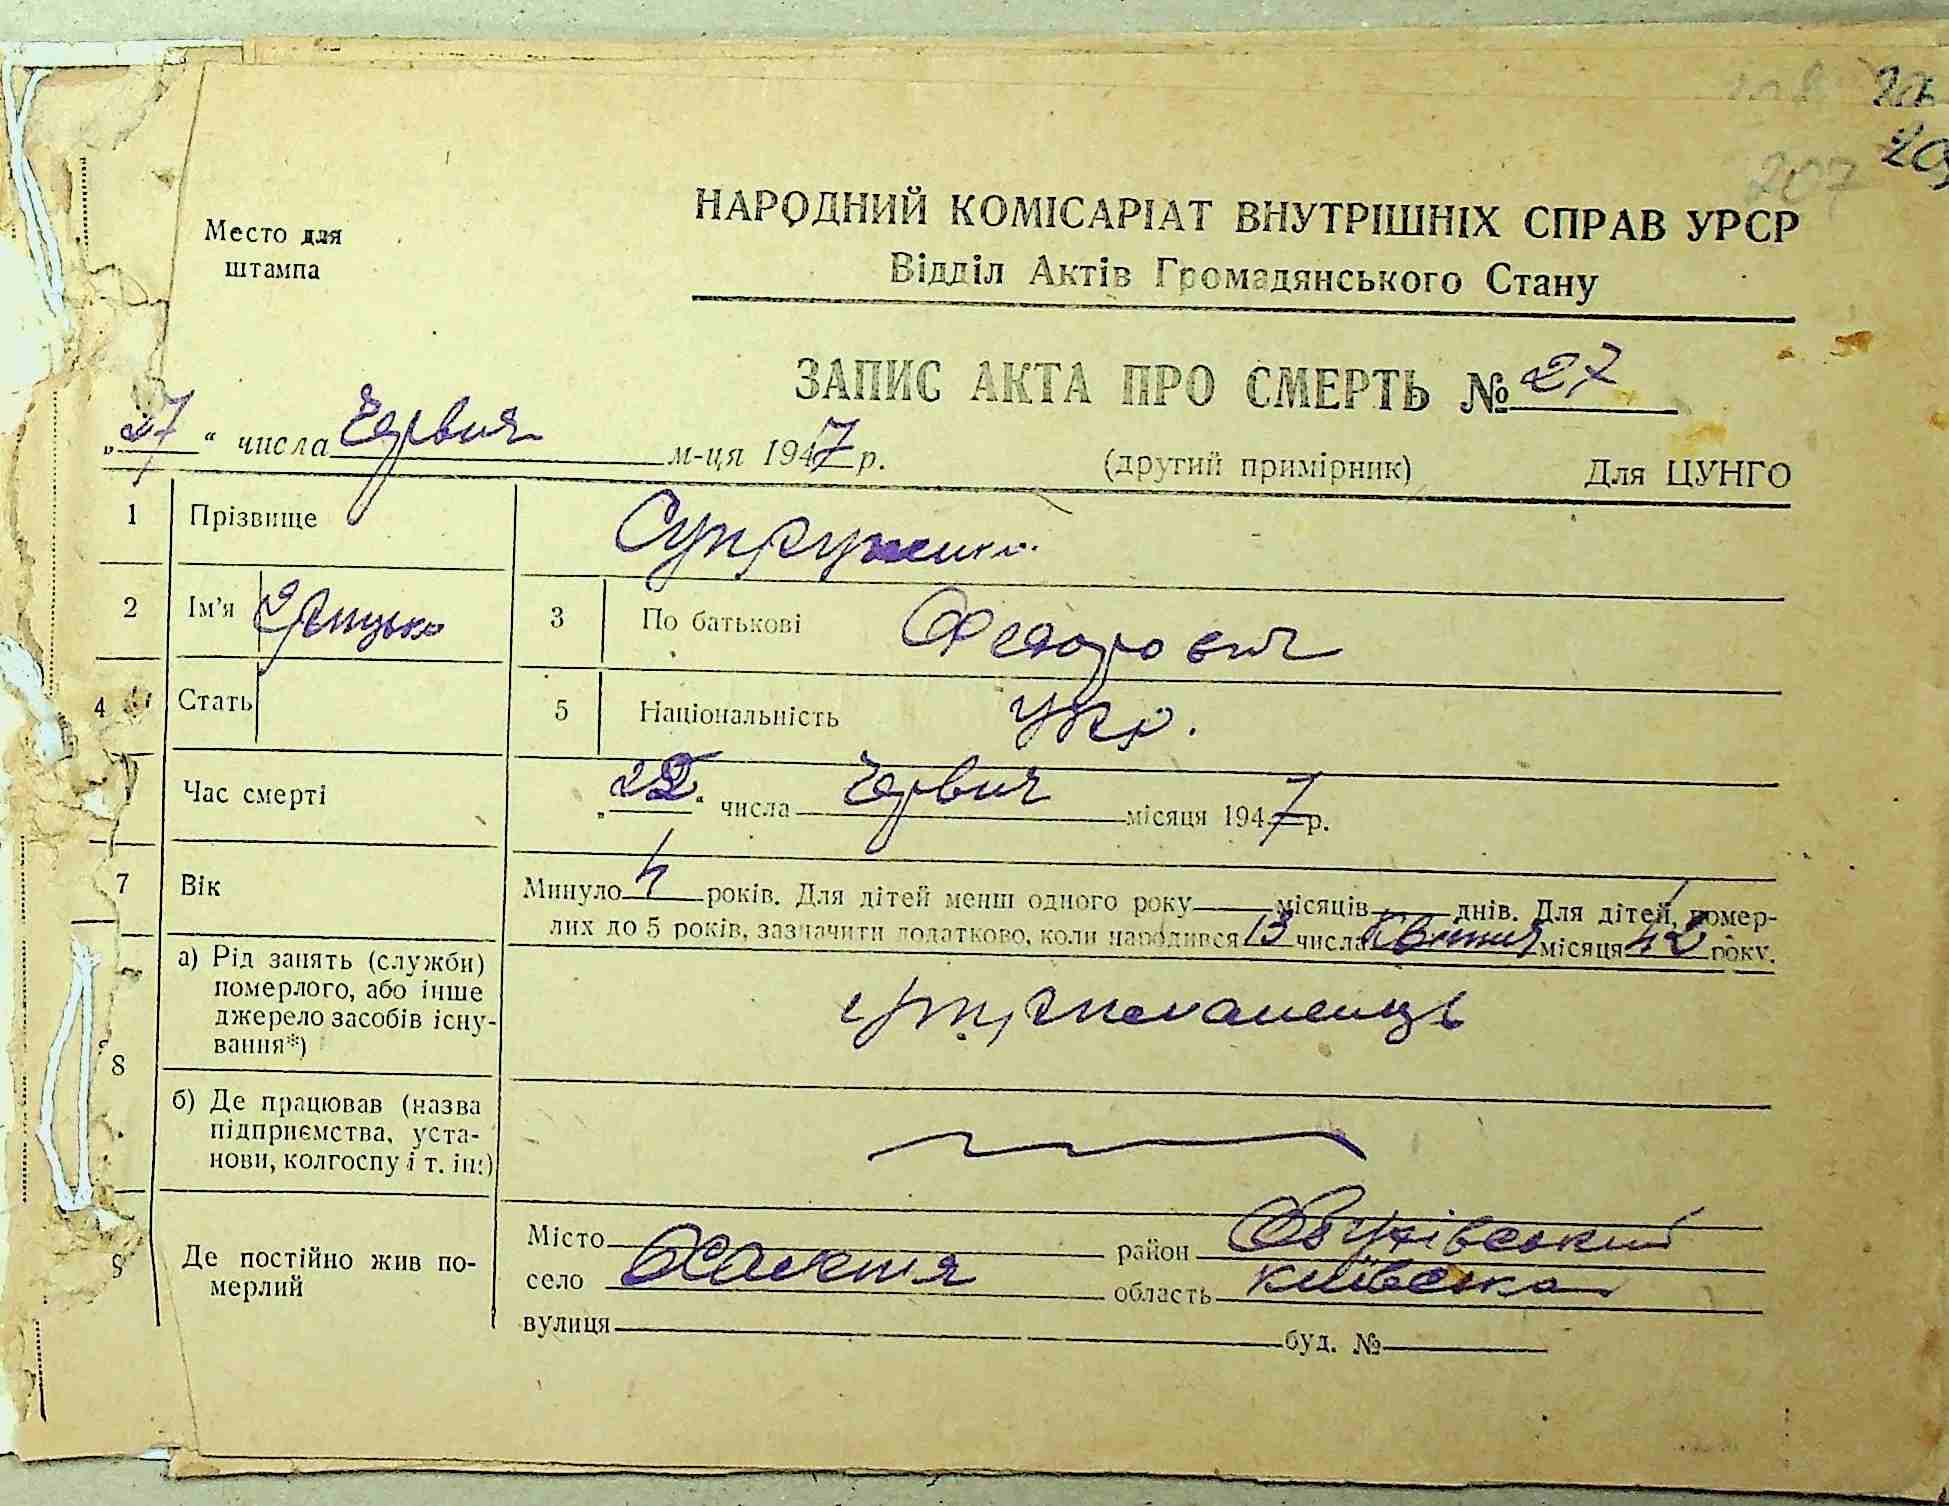 207
Место для
штампа
НАРОДНИЙ КОМІСАРІАТ ВНУТРІШНІХ СПРАВ УРСР
Відділ Актів Громадянського Стану
ЗАПИС АКТА ПРО СМЕРТЬ № 27
„27“ числа Червня м-ця 1947 р.
(другий примірник) Для ЦУНГО
1 Прізвище
2 Ім'я Грицько 3 По батькові Федорович
4 Стать 5 Національність укр.
Час смерті „22“ числа Червня місяця 1947 р.
7 Вік Минуло 4 років. Для дітей менш одного року місяців днів. Для дітей, помер-
лих до 5 років, зазначити додатково, коли народився 13 числа Квітня місяця 42 року.
8 а) Рід занять (служби)
померлого, або інше
джерело засобів існу-
вання*)
б) Де працював (назва
підприємства, уста-
нови, колгоспу і т. ін.)
9 Де постійно жив по-
мерлий
Місто район Обухівський
село область Київська
вулиця буд. №